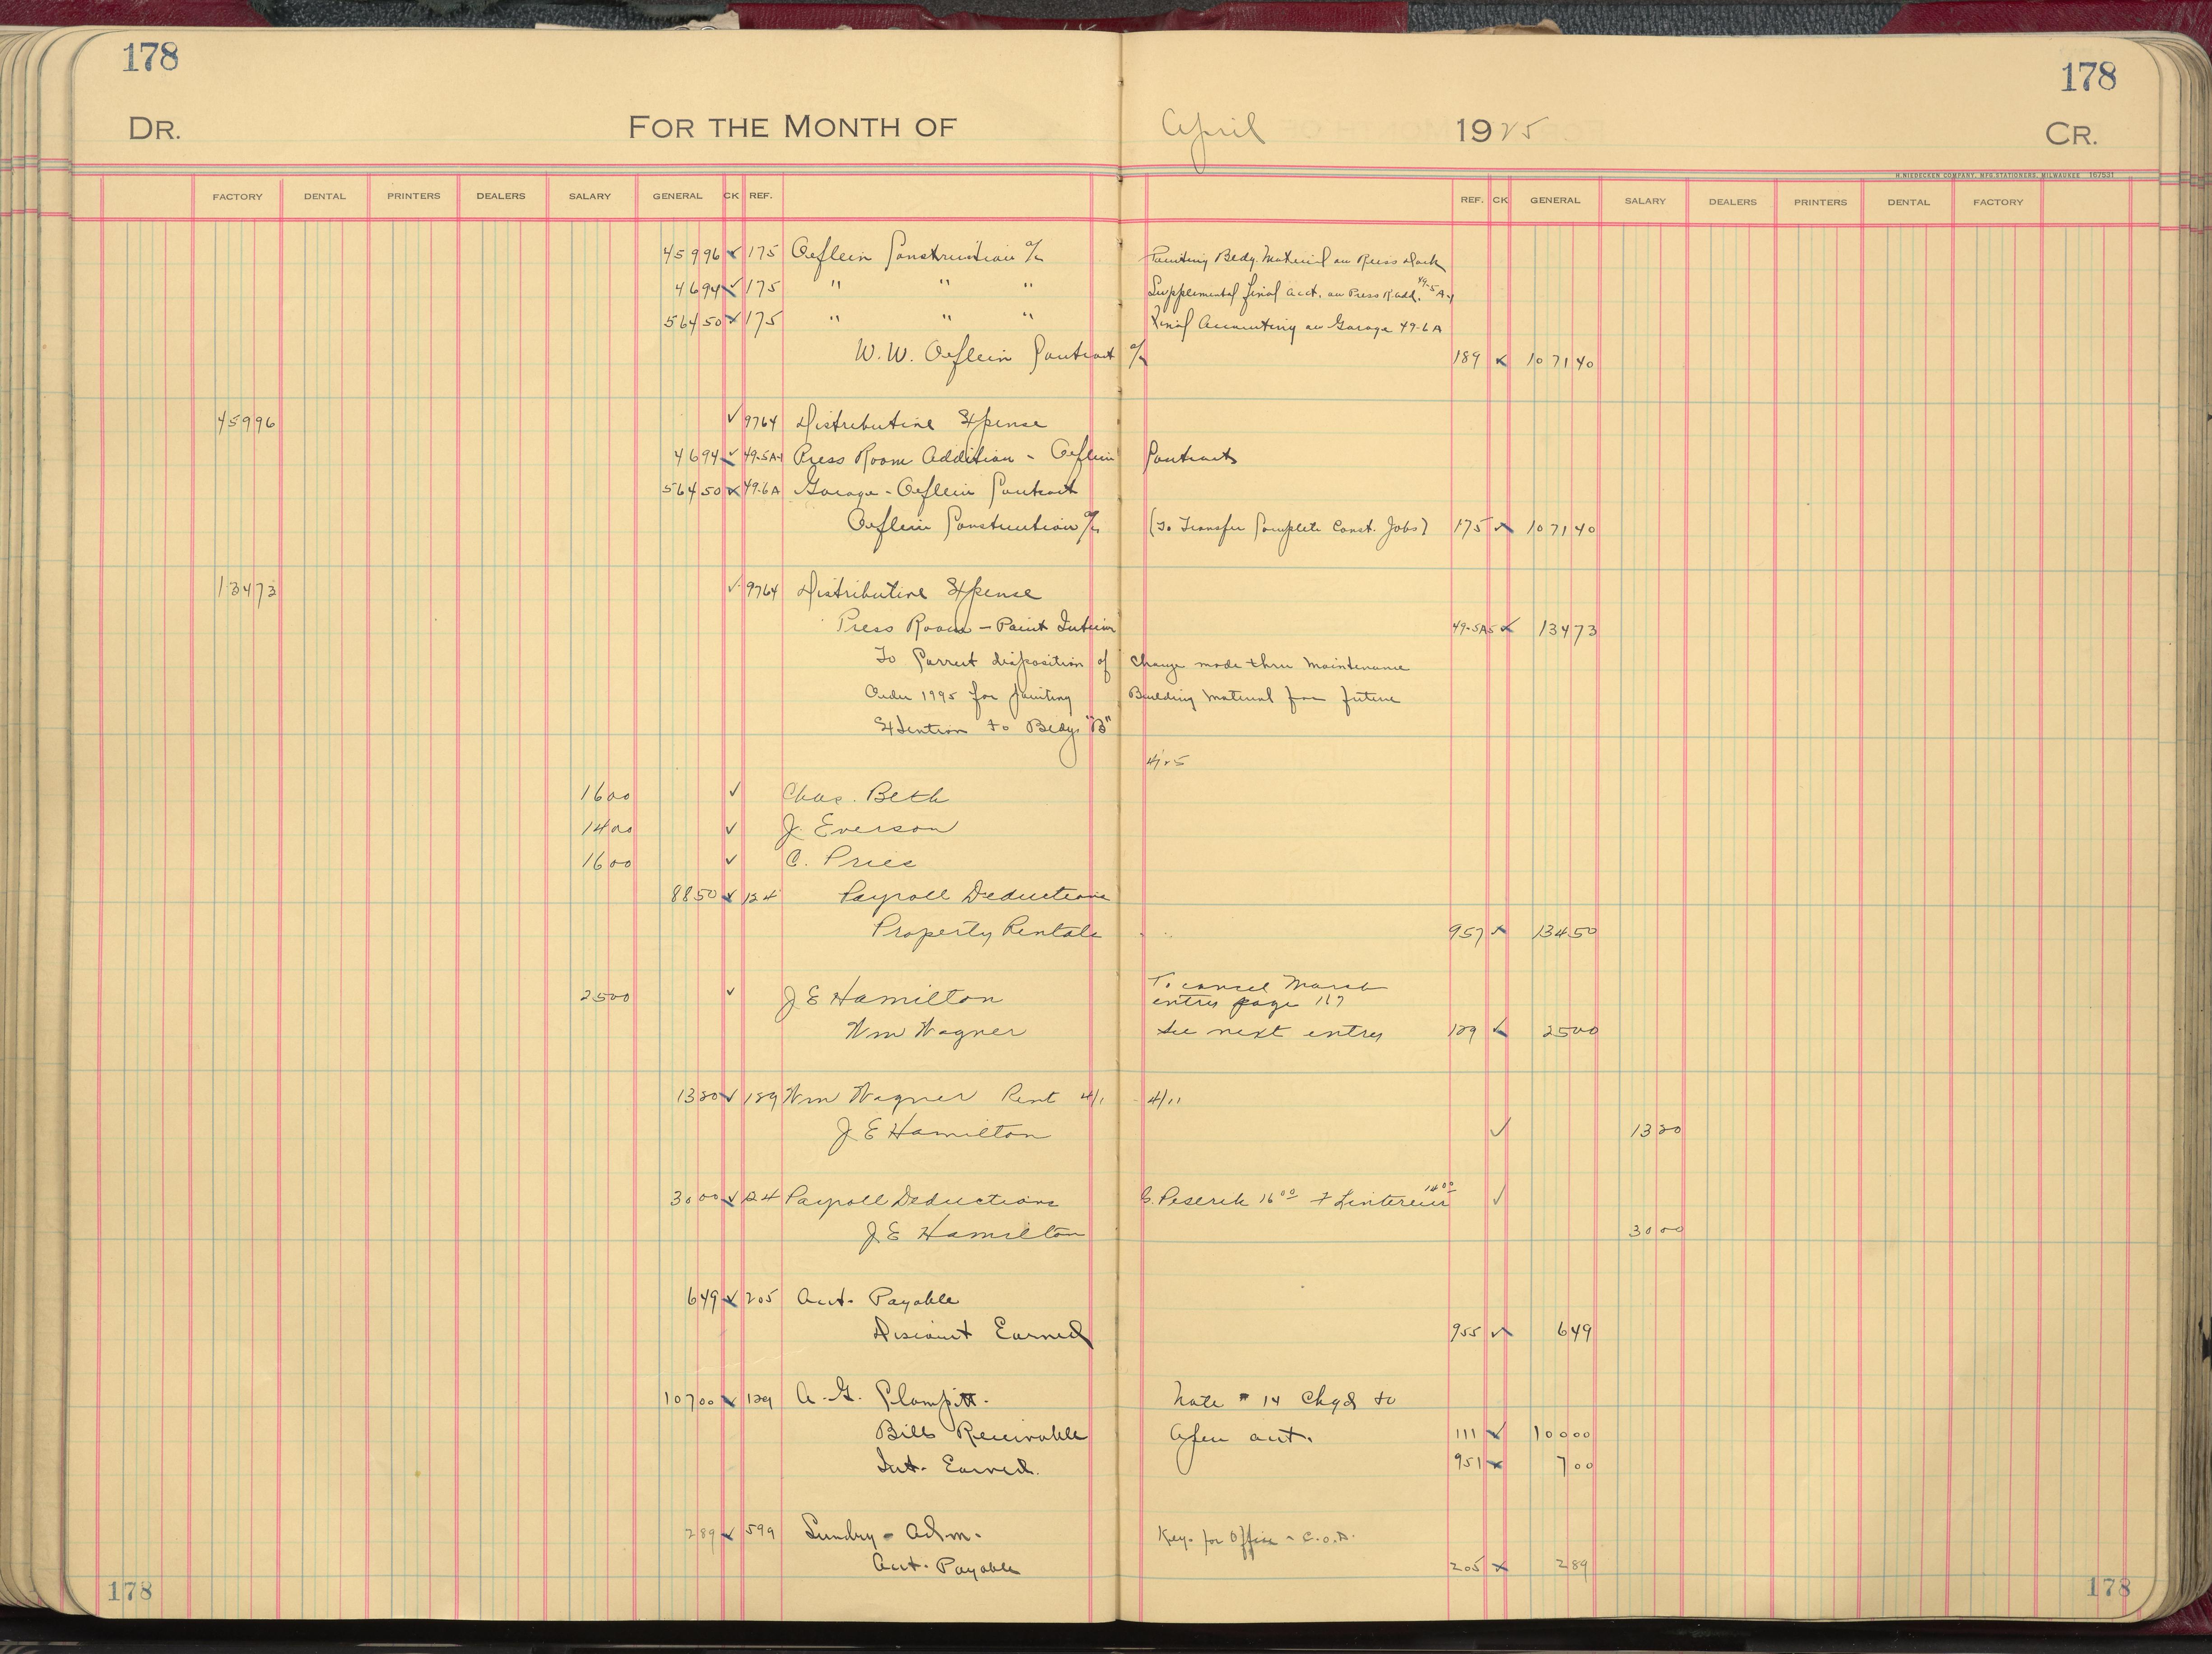 178 178
DR. FOR THE MONTH OF April 1925 CR.
H. NIEDECKEN COMPANY, MFG. STATIONERS, MILWAUKEE 167531
FACTORY DENTAL PRINTERS DEALERS SALARY GENERAL CK REF. REF. CK GENERAL SALARY DEALERS PRINTERS DENTAL FACTORY
459 96 175 Oeflein Construction a/c Painting Bldg. Material on Press
46 94 ✓ 175 " " " Supplemental final acct. on Press R. add. 49-5A-1
564 50 175 " " " Final Accounting on Garage 49-6A
W. W. Oeflein Contract a/c 189 1071 40
459 96 ✓ 9764 Distributive Expense
46 94 ✓ 49-5A-1 Press Room Addition - Oeflein Contracts
564 50 49-6A Garage - Oeflein Contract
Oeflein Construction a/c (To Transfer Complete Const. Jobs) 175 1071 40
134 73 ✓ 9764 Distributive Expense
Press Room - Paint Interior 49-5A5 134 73
To Correct disposition of charge made thru Maintenance
Order 1995 for painting Building Material for future
Extention to Bldg "B"
4/25
16 00 ✓ Chas. Beth
14 00 ✓ J. Everson
16 00 ✓ C. Price
88 50 124 Payroll Deductions
Property Rentals " 957 134 50
25 00 ✓ J E Hamilton To cancel March
entry page 117
Wm Wagner See next entry 189 25 00
13 20 ✓ 189 Wm Wagner Rent 4/1 - 4/11
J E Hamilton ✓ 13 20
30 00 ✓ 124 Payroll Deductions 16 00 14 00 ✓
J. E Hamilton 30 00
6 49 205 Acct. Payable
Discount Earned 955 6 49
107 00 129 A. G. Plampitt. Note # 14 Chgd to
Bills Receivable Open acct. 111 100 00
Int. Earned. 951 7 00
2 89 599 Sundry - Adm. Key for Office - C.O.D.
Acct. Payable 205 2 89
178 178